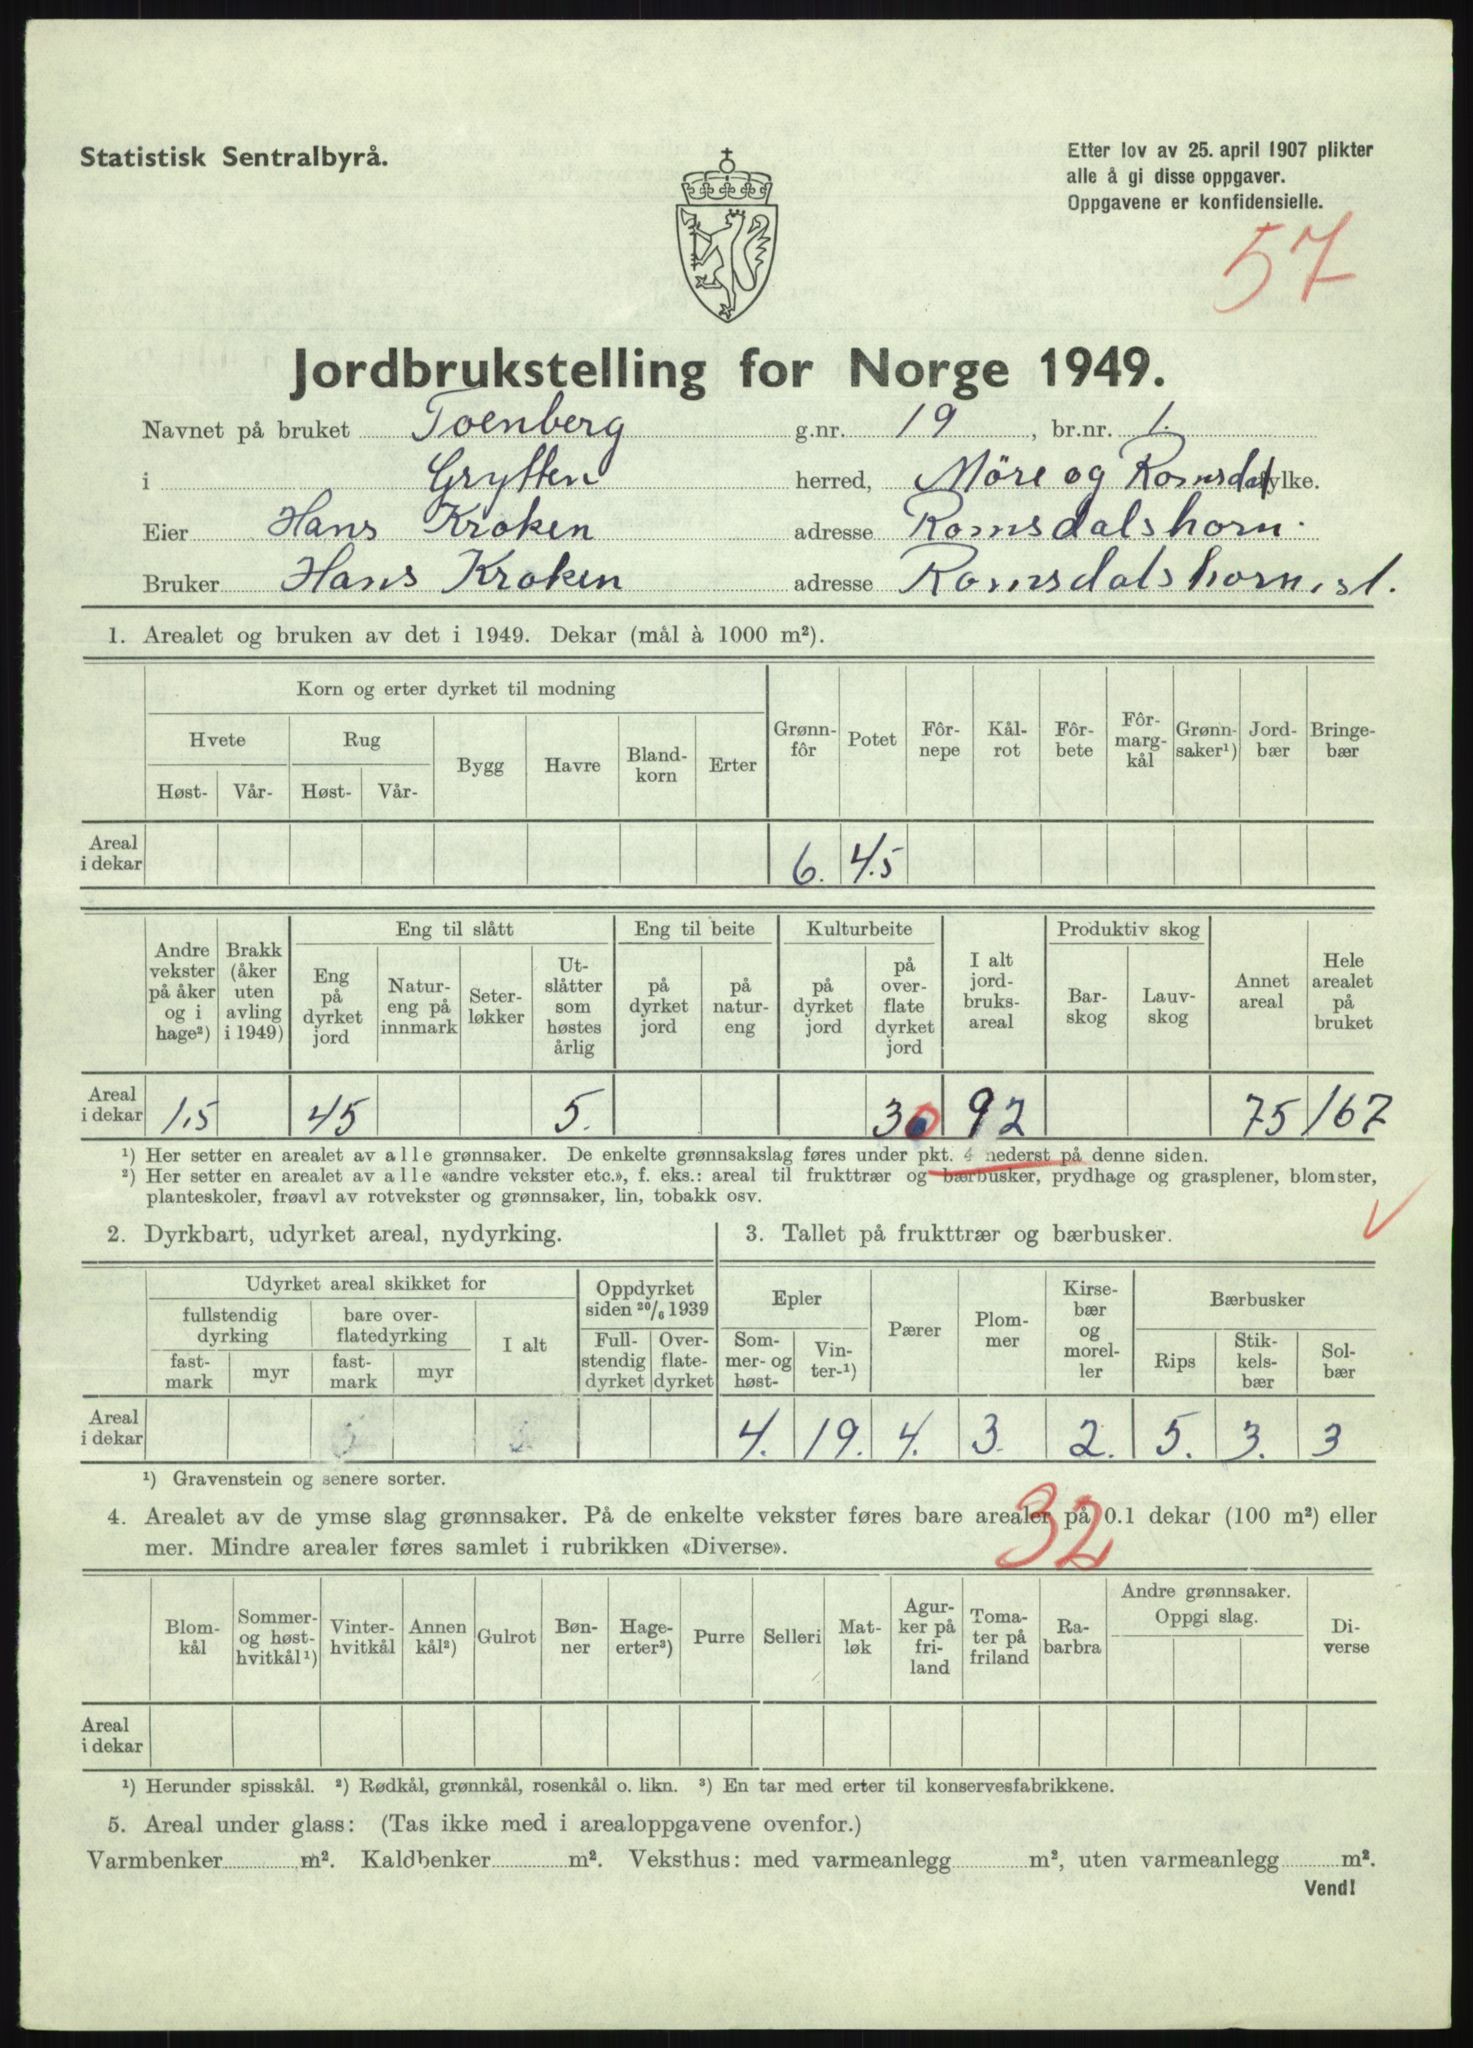 Statistisk Sentralbyrå.
Etter lov av 25. april 1907 plikter
alle å gi disse oppgaver.
Oppgavene er konfidensielle.
57
Jordbrukstelling for Norge 1949.
Navnet på bruket Toenberg g.nr. 19, br.nr. 1.
i Grytten herred, Möre og Romsdal fylke.
Eier Hans Kroken adresse Romsdalshorn.
Bruker Hans Kroken adresse Romsdalshorn, st.
1. Arealet og bruken av det i 1949. Dekar (mål à 1000 m²).
Korn og erter dyrket til modning
Hvete Rug
Høst- Vår- Høst- Vår-
Bygg Havre Bland-korn Erter Grønn-fôr Potet Fôr-nepe Kål-rot Fôr-bete Fôr-marg-kål Grønn-saker¹) Jord-bær Bringe-bær
Areal i dekar 6. 4.5
Andre vekster på åker og i hage²) Brakk (åker uten avling i 1949)
Eng til slått Eng til beite Kulturbeite Produktiv skog
Eng på dyrket jord Natur-eng på innmark Seter-løkker Ut-slåtter som høstes årlig
på dyrket jord på natur-eng på dyrket jord på over-flate dyrket jord
I alt jord-bruks-areal Bar-skog Lauv-skog Annet areal Hele arealet på bruket
Areal i dekar 1,5 45 5. 30 92 75 167
¹) Her setter en arealet av alle grønnsaker. De enkelte grønnsakslag føres under pkt. 4 nederst på denne siden.
²) Her setter en arealet av alle «andre vekster etc.», f. eks.: areal til frukttrær og bærbusker, prydhage og grasplener, blomster,
planteskoler, frøavl av rotvekster og grønnsaker, lin, tobakk osv.
2. Dyrkbart, udyrket areal, nydyrking.
3. Tallet på frukttrær og bærbusker.
Udyrket areal skikket for
fullstendig dyrking bare over-flatedyrking I alt
fast-mark myr fast-mark myr
Oppdyrket siden 20/6 1939
Full-stendig dyrket Over-flate-dyrket
Epler
Som-mer- og høst- Vin-ter-¹) Pærer Plom-mer Kirse-bær og morel-ler
Bærbusker
Rips Stik-kels-bær Sol-bær
Areal i dekar 5 5. 4. 19. 4. 3. 2. 5. 3. 3
¹) Gravenstein og senere sorter.
32
4. Arealet av de ymse slag grønnsaker. På de enkelte vekster føres bare arealer på 0.1 dekar (100 m²) eller
mer. Mindre arealer føres samlet i rubrikken «Diverse».
Blom-kål Sommer- og høst-hvitkål¹) Vinter-hvitkål Annen kål²) Gulrot Bøn-ner Hage-erter³) Purre Selleri Mat-løk Agur-ker på fri-land Toma-ter på friland Ra-barbra Andre grønnsaker. Oppgi slag. Di-verse
Areal i dekar
¹) Herunder spisskål. ²) Rødkål, grønnkål, rosenkål o. likn. ³) En tar med erter til konservesfabrikkene.
5. Areal under glass: (Tas ikke med i arealoppgavene ovenfor.)
Varmbenker m². Kaldbenker m². Veksthus: med varmeanlegg m², uten varmeanlegg m².
Vend!